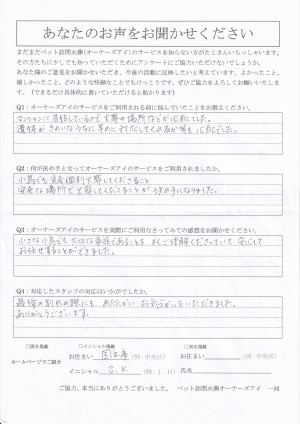 あなたのお声をお聞かせください
まだまだペット訪問火葬(オーナーズアイ)のサービスを知らない方がたくさんいらっしゃいます。
その方たちに少しでも知っていただくためにアンケートにご協力いただけないでしょうか。
あなた様のご意見をお聞かせいただき、今後の活動に反映したいと考えています。よかったこと、
嬉しかったこと、どのような些細なことでもけっこうです。ぜひご協力をよろしくお願いいたします。
(できるだけ具体的に書いていただけると助かります)
Q1：オーナーズアイのサービスをご利用される前に悩んでいたことをお教えください。
マンションに居住しているので火葬の場所などが心配でした。
遺体がきれいなうちに早めに対応してくれるか等も心配でした。
Q2：何が決め手となってオーナーズアイのサービスをご利用されましたか。
小鳥でも完全個別火葬してくださること
安全な場所で火葬してくださることが決め手になりました。
Q3：オーナーズアイのサービスを実際にご利用なさってみての感想をお聞かせください。
小さな小鳥でも大切な家族であることをよくご理解くださっていて、安心して
お任せすることができました。
Q4：対応したスタッフの対応はいかがでしたか。
最後のお別れの際にも、あたたかいお気づかいをいただきました。
ありがとうございます。
□匿名掲載 □イニシャル掲載 □実名掲載
ホームページでご紹介
お住まい (例：中央区) お住まい (例：中央区)
イニシャル S.K (例：J.H) 氏名
ご協力、本当にありがとうございました。 ペット訪問火葬オーナーズアイ 一同